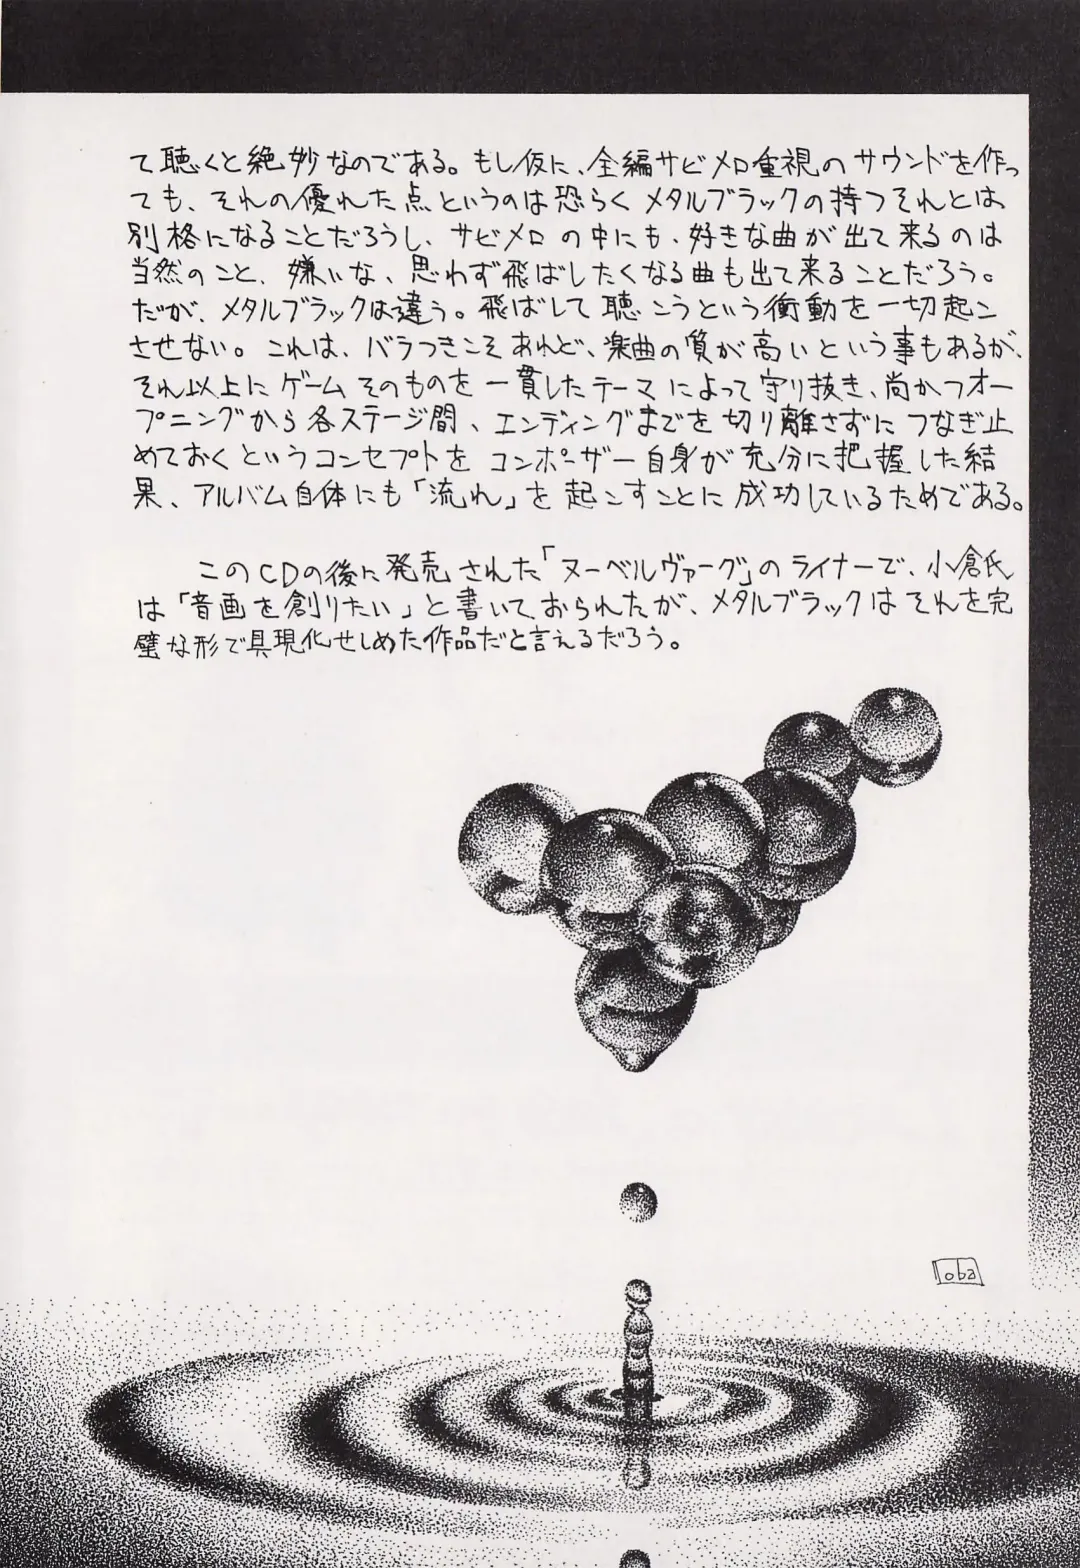 て聴くと絶妙なのである。もし仮に、全編サビメロ重視のサウンドを作っ
ても、それの優れた点というのは恐らくメタルブラックの持つそれとは
別格になることだろうし、サビメロの中にも、好きな曲が出て来るのは
当然のこと、嫌いな、思わず飛ばしたくなる曲も出て来ることだろう。
だが、メタルブラックは違う。飛ばして聴こうという衝動を一切起こ
させない。これは、バラつきこそあれど、楽曲の質が高いという事もあるが、
それ以上にゲームそのものを一貫したテーマによって守り抜き、尚かつオー
プニングから各ステージ間、エンディングまでを切り離さずにつなぎ止
めておくというコンセプトをコンポーザー自身が充分に把握した結
果、アルバム自体にも「流れ」を起こすことに成功しているためである。
このCDの後に発売された「ヌーベルヴァーグ」のライナーで、小倉氏
は「音画を創りたい」と書いておられたが、メタルブラックはそれを完
璧な形で具現化せしめた作品だと言えるだろう。
oba